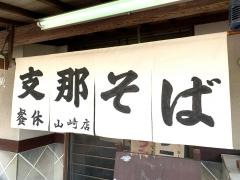 支那そば
餐休 山崎店